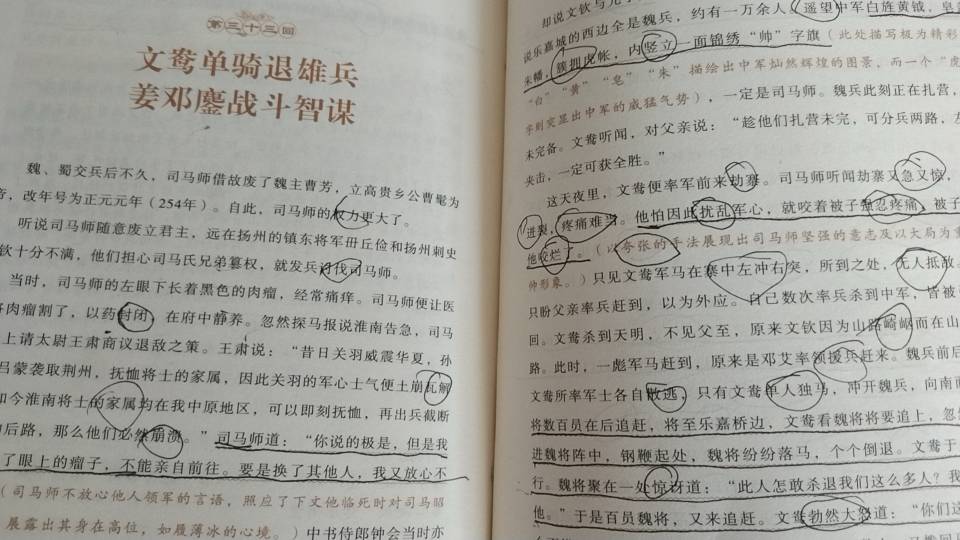 第三十三回
文鸯单骑退雄兵
姜邓鏖战斗智谋
魏、蜀交兵后不久，司马师借故废了魏主曹芳，立高贵乡公曹髦为
帝，改年号为正元元年（254年）。自此，司马师的权力更大了。
听说司马师随意废立君主，远在扬州的镇东将军毌丘俭和扬州刺史
钦十分不满，他们担心司马氏兄弟篡权，就发兵讨伐司马师。
当时，司马师的左眼下长着黑色的肉瘤，经常痛痒。司马师便让医
将肉瘤割了，以药封闭，在府中静养。忽然探马报说淮南告急，司马
上请太尉王肃商议退敌之策。王肃说：“昔日关羽威震华夏，孙
吕蒙袭取荆州，抚恤将士的家属，因此关羽的军心士气便土崩瓦解
如今淮南将士的家属均在我中原地区，可以即刻抚恤，再出兵截断
的后路，那么他们必然崩溃。”司马师道：“你说的极是，但是我
了眼上的瘤子，不能亲自前往。要是换了其他人，我又放心不
（司马师不放心他人领军的言语，照应了下文他临死时对司马昭
展露出其身在高位，如履薄冰的心境。）中书侍郎钟会当时亦
却说文钦与儿子
说乐嘉城的西边全是魏兵，约有一万余人，遥望中军白旌黄钺，皂盖
朱幡，簇拥虎帐，内竖立一面锦绣“帅”字旗（此处描写极为精彩
“白”“黄”“皂”“朱”描绘出中军灿然辉煌的图景，而一个“虎
字则突显出中军的威猛气势），一定是司马师。魏兵此刻正在扎营，
未完备。文鸯听闻，对父亲说：“趁他们扎营未完，可分兵两路，左
夹击，一定可获全胜。”
这天夜里，文鸯便率军前来劫寨。司马师听闻劫寨又急又惊，
迸裂，疼痛难当。他怕因此扰乱军心，就咬着被子强忍疼痛，被子
他咬烂了。（以夸张的手法展现出司马师坚强的意志及以大局为重
帅形象。）只见文鸯军马在寨中左冲右突，所到之处，无人抵敌。
只盼父亲率兵赶到，以为外应。自己数次率兵杀到中军，皆被
回。文鸯杀到天明，不见父至，原来文钦因为山路崎岖而在山
路。此时，一彪军马赶到，原来是邓艾率领援兵赶来。魏兵前后
文鸯所率军士各自散逃，只有文鸯单人独马，冲开魏兵，向南而
将数百员在后追赶，将至乐嘉桥边，文鸯看魏将将要追上，忽然
进魏将阵中，钢鞭起处，魏将纷纷落马，个个倒退。文鸯于
行。魏将聚在一处惊讶道：“此人怎敢杀退我们这么多人？我
他。”于是百员魏将，又来追赶。文鸯勃然大怒道：“你们这